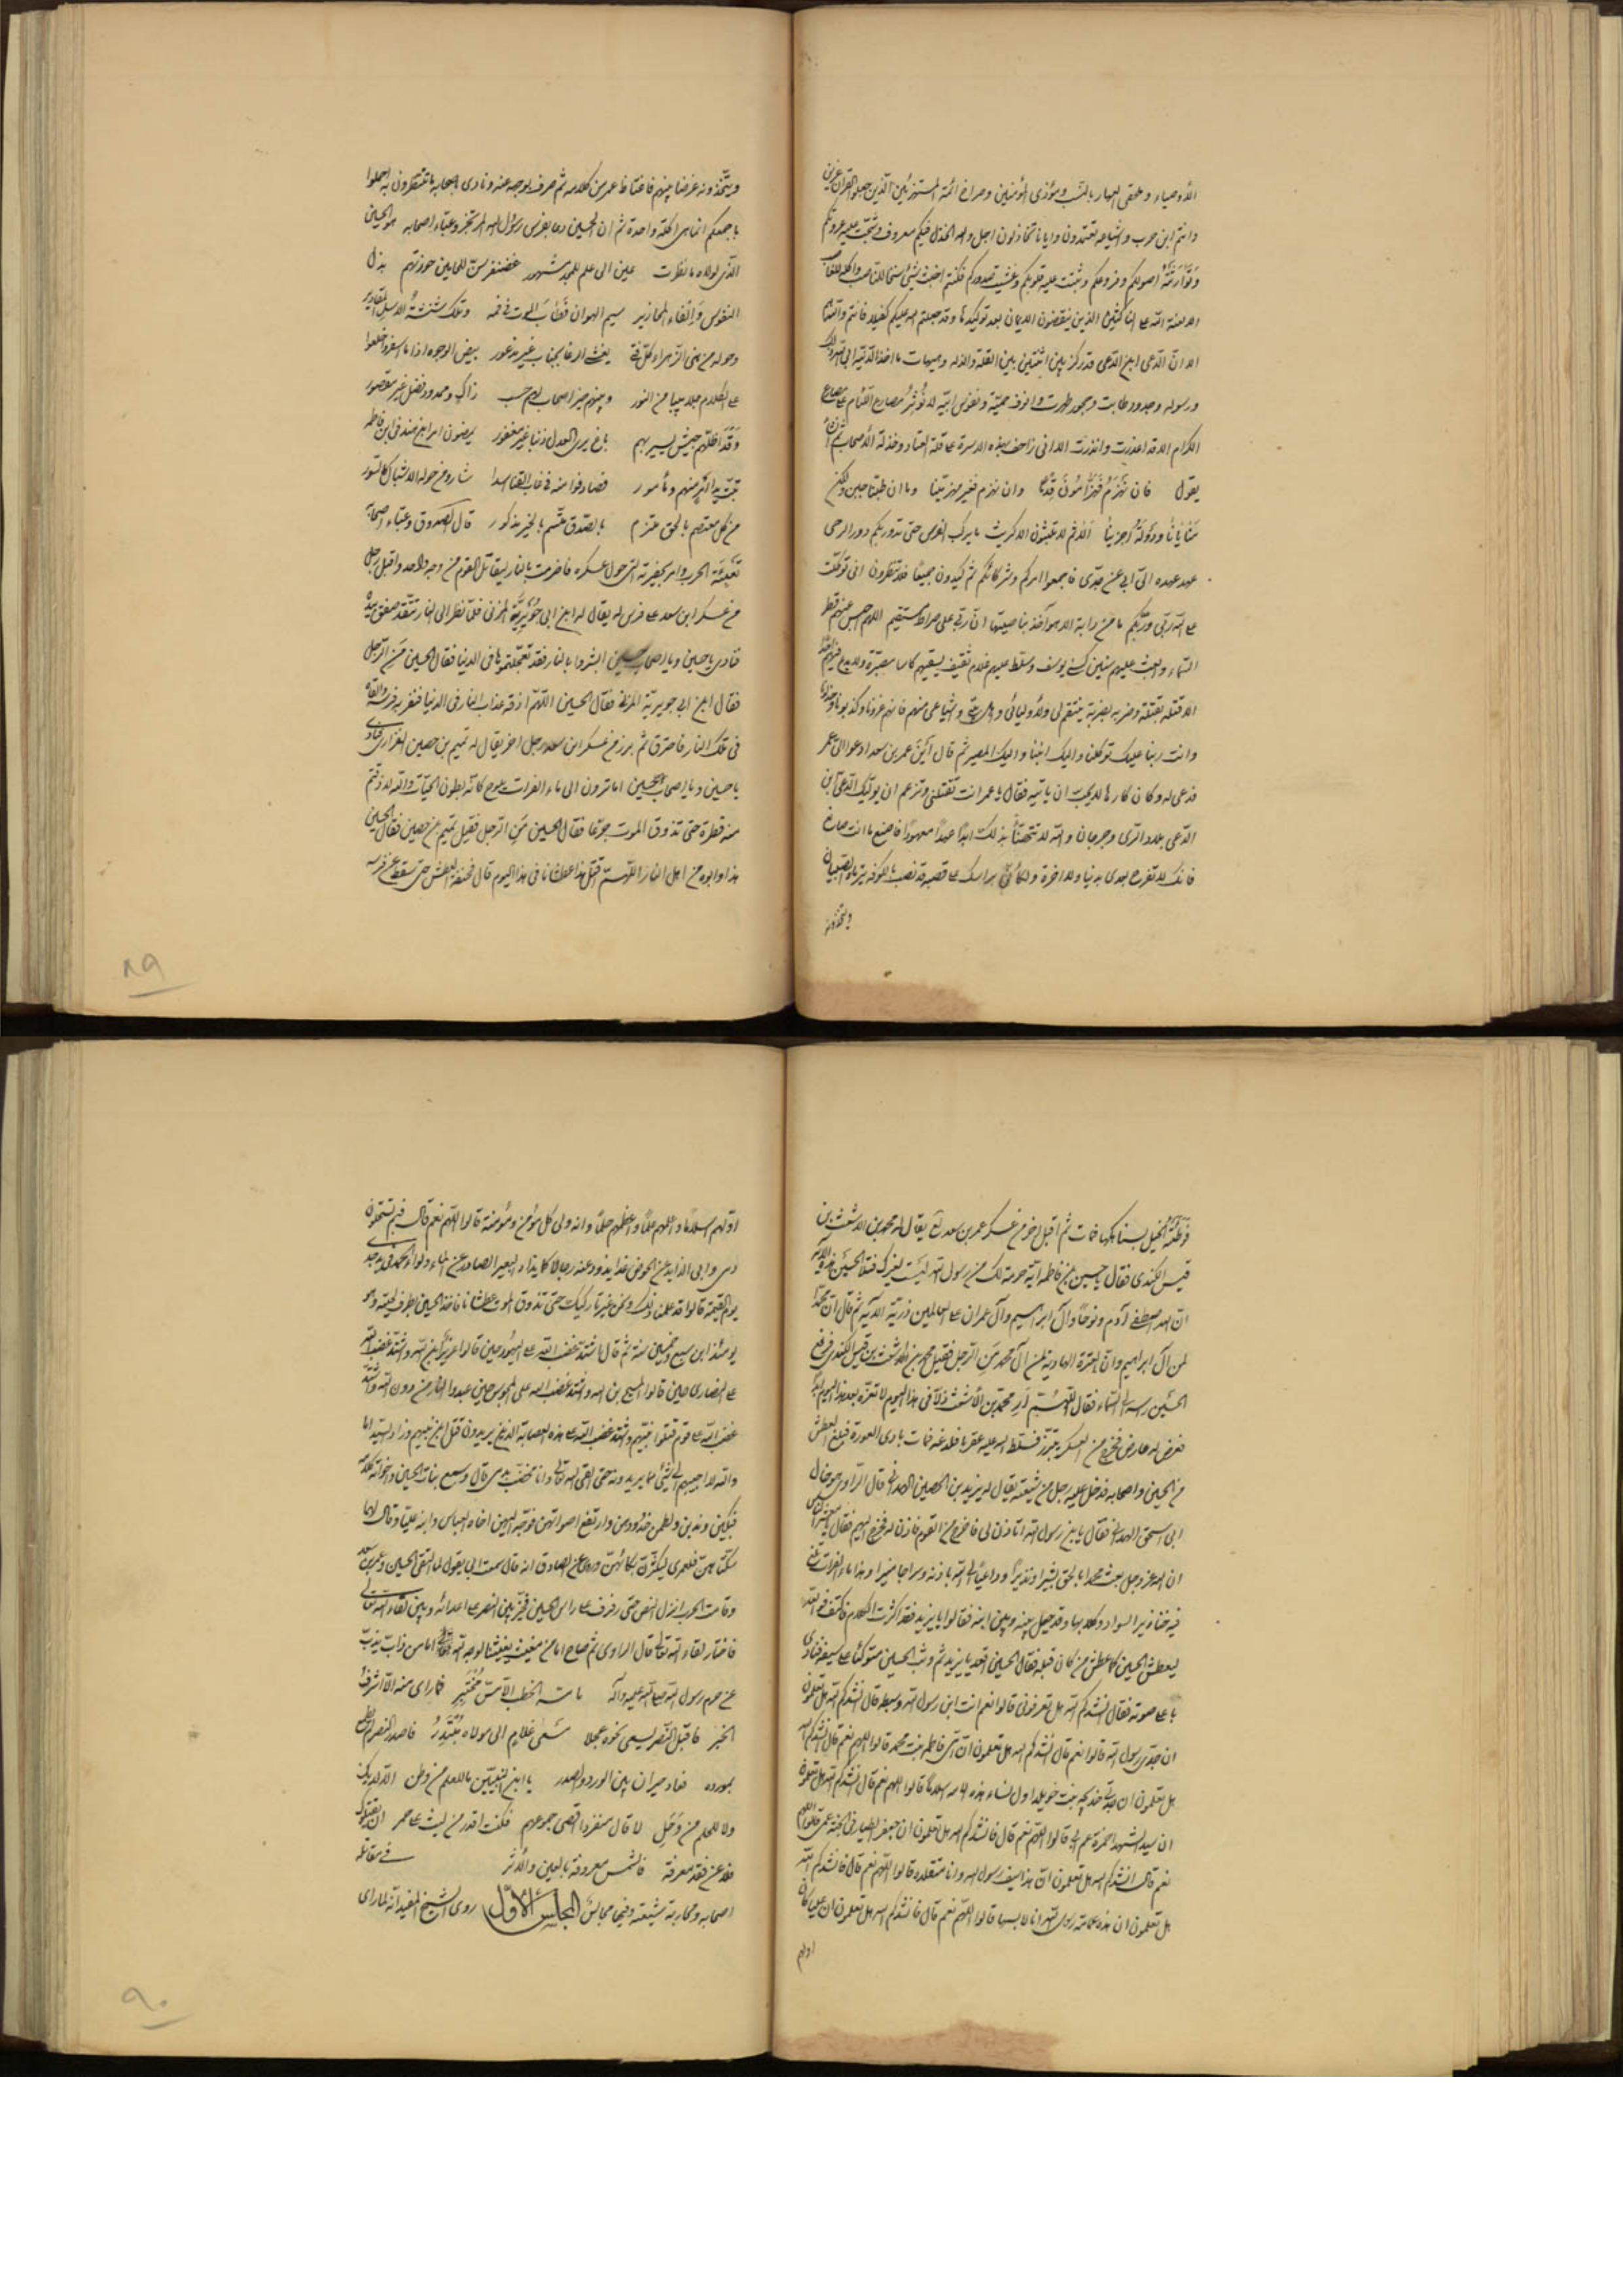 الأوصياء و ملحقى العهار بالنسب ومؤذى المؤمنين وصراخ ائمة المستهزئين الذين جعلوا القران عضين
وانتم ابن حرب واشياعه تعتمدون وايانا تخاذلون اجل والله الخذل فيكم معروف وشجت عليه عروقكم
وتوارثته اصولكم وفروعكم وثبتت عليه قلوبكم وغشيت صدوركم فكنتم اخبث شئ سنخا للناصب واكلة للغاصب
الا لعنة الله على الناكثين الذين ينقضون الايمان بعد توكيدها وقد جعلتم الله عليكم كفيلا فانتم والله هم
الا ان الدعى ابن الدعى قد ركز بين اثنتين بين القلة والذلة وهيهات ما اخذ الدنية ابى الله ذلك
ورسوله وجدود طابت وحجور طهرت وانوف حمية ونفوس ابية لا تؤثر مصارع اللئام على مصارع
الكرام الا قد اعذرت وانذرت الا انى زاحف بهذه الاسرة على قلة العتاد وخذلة الأصحاب ثم انشأ
يقول فان نهزم فهزامون قدما وان نهزم فغير مهزمينا وما ان طبنا جبن ولكن
منايانا ودولة آخرينا الا ثم لا تلبثون الا كريث ما يركب الفرس حتى تدور بكم دور الرحى
عهد عهده الى ابى عن جدى فاجمعوا امركم وشركائكم ثم كيدون جميعا فلا تنظرون انى توكلت
على الله ربى وربكم ما من دابة الا هو آخذ بناصيتها ان ربى على صراط مستقيم اللهم احبس عنهم قطر
السماء وابعث عليهم سنين كسنى يوسف وسلط عليهم غلام ثقيف يسقيهم كاسا مصبرة ولا يدع فيهم احدا
الا قتله بقتلة وضربه بضربة ينتقم لى ولأوليائى واهل بيتى واشياعى منهم فانهم غرونا وكذبونا وخذلونا
وانت ربنا عليك توكلنا واليك انبنا واليك المصير ثم قال اين عمر بن سعد ادعوا لى عمر
فدعى له وكان كارها لا يحب ان ياتيه فقال يا عمر انت تقتلنى وتزعم ان يوليك الدعى ابن
الدعى بلاد الرى وجرجان والله لا تتهنأ بذلك ابدا عهدا معهودا فاصنع ما انت صانع
فانك لا تفرح بعدى بدنيا ولا اخرة ولكأنى براسك على قصبة قد نصب بالكوفة يتراماه الصبيان
ويتخذونه
ويتخذونه غرضا بينهم فاغتاظ عمر من كلامه ثم صرف بوجهه عنه ونادى اصحابه ما تنتظرون به احملوا
باجمعكم انما هى اكلة واحدة ثم ان الحسين دعا بفرس رسول الله المرتجز وعباء اصحابه هو الحسين
الذى لولاه ما نظرت عين الى علم للمجد مشهور غضنفر سن للحامين حوزتهم بذل
النفوس والقاء المحاذير سيم الهوان فطاب الموت فى فمه وتلك شنشنة الاسد المغاوير
وحوله من بنى الزهراء كل فتى يغشى الوغا بجنان غير مذعور بيض الوجوه اذا ما سفروا خلعوا
على الظلام جلابيبا من النور وبينهم خير اصحاب لهم حسب زاك ومحدود فضل غير مقصور
وقد اظلتهم جيش يسير بهم باغ يرى العدل ذنبا غير مغفور يرضون ابن هند فى ابن فاطمة
تبت يدا آمر منهم ومأمور فصادفوا منه فى غاب القنا اسدا شاروع حوله الاشبال كالسور
من كل معتصم بالحق ملتزم بالصدق متسم بالخير مذكور قال الصدوق وعباء اصحابه
تعبئة الحرب وامر بحفيرته التى حول عسكره فاضرمت بالنار ليقاتل القوم من وجه واحد واقبل رجل
من عسكر ابن سعد على فرس له يقال له ابن ابى جويرية المزنى فلما نظر الى النار تتقد صفق بيده
فنادى يا حسين ويا اصحاب حسين ابشروا بالنار فقد تعجلتموها فى الدنيا فقال الحسين من الرجل
فقال ابن ابى جويرية المزنى فقال الحسين اللهم اذقه عذاب النار فى الدنيا فنفر به فرسه والقاه
فى تلك النار فاحترق ثم برز من عسكر ابن سعد رجل اخر يقال له تميم بن حصين الفزارى فنادى
يا حسين ويا اصحاب حسين اما ترون الى ماء الفرات يلوح كانه بطون الحيات والله لا ذقتم
منه قطرة حتى تذوق الموت جرعا فقال الحسين من الرجل فقيل تميم بن حصين فقال الحسين
هذا وابوه من اهل النار اللهم اقتل هذا عطشانا فى هذا اليوم قال فخنقه العطش حتى سقط عن فرسه
٨٩
فوطئته الخيل بسنابكها فمات ثم اقبل اخر من عسكر عمر بن سعد يقال له محمد بن الاشعث بن
قيس الكندى فقال يا حسين بن فاطمة اية حرمة لك من رسول الله ليست لغيرك فتلا الحسين هذه الآية
ان الله اصطفى آدم ونوحا وآل ابراهيم وآل عمران على العالمين ذرية الآية ثم قال ان محمدا
لمن آل ابراهيم وان العترة الهادية لمن آل محمد من الرجل فقيل محمد بن الاشعث بن قيس الكندى فرفع
الحسين راسه الى السماء فقال اللهم ار محمد بن الأشعث ذلا فى هذا اليوم لا تعزه بعد هذا اليوم ابدا
فعرض له عارض فخرج من العسكر يتبرز فسلط الله عليه عقربا فلدغته فمات بادى العورة فبلغ العطش
من الحسين واصحابه فدخل عليه رجل من شيعته يقال له يزيد بن الحصين الهمدانى قال الراوى هو خال
ابى اسحق الهمدانى فقال يا بن رسول الله اتاذن لى فاخرج الى القوم فاذن له فخرج اليهم فقال يا معشر الناس
ان الله عز وجل بعث محمدا بالحق بشيرا ونذيرا وداعيا الى الله باذنه وسراجا منيرا وهذا ماء الفرات تقع
فيه خنازير السواد وكلابها وقد حيل بينه وبين ابنه فقالوا يا يزيد فقد اكثرت الكلام فاكفف فوالله
ليعطش الحسين كما عطش من كان قبله فقال الحسين اقعد يا يزيد ثم وثب الحسين متوكئا على سيفه فنادى
باعلى صوته فقال انشدكم الله هل تعرفونى قالوا نعم انت ابن رسول الله وسبطه قال انشدكم الله هل تعلمون
ان جدى رسول الله قالوا نعم قال انشدكم الله هل تعلمون ان امى فاطمة بنت محمد قالوا اللهم نعم قال انشدكم الله
هل تعلمون ان جدتى خديجة بنت خويلد اول نساء هذه الامة اسلاما قالوا اللهم نعم قال انشدكم الله هل تعلمون
ان سيد الشهداء حمزة عم ابى قالوا اللهم نعم قال فانشدكم الله هل تعلمون ان جعفر الطيار فى الجنة عمى قالوا اللهم
نعم قال انشدكم الله هل تعلمون ان هذا سيف رسول الله وانا متقلده قالوا اللهم نعم قال فانشدكم الله
هل تعلمون ان هذه عمامة رسول الله انا لابسها قالوا اللهم نعم قال فانشدكم الله هل تعلمون ان عليا كان
اولهم
اولهم اسلاما واعلمهم علما واعظمهم حلما وانه ولى كل مؤمن ومؤمنة قالوا اللهم نعم قال فبم تستحلون
دمى وابى الذايد عن الحوض غدا يذود عنه رجالا كما يذاد البعير الصادر عن الماء ولواء الحمد فى يد جدى
يوم القيمة قالوا قد علمنا ذلك ونحن غير تاركيك حتى تذوق الموت عطشانا فاخذ الحسين بطرف لحيته وهو
يومئذ ابن سبع وخمسين سنة ثم قال اشتد غضب الله على اليهود حين قالوا عزير ابن الله واشتد غضب الله
على النصارى حين قالوا المسيح بن الله واشتد غضب الله على المجوس حين عبدوا النار من دون الله واشتد
غضب الله على قوم قتلوا نبيهم واشتد غضب الله على هذه العصابة الذين يريدون قتل ابن نبيهم
والله لا اجيبهم الى شئ مما يريدونه حتى القى الله تعالى وانا مخضب بدمى قال وسمع بنات الحسين واخواته كلامه
فبكين وندبن ولطمن خدودهن وارتفع اصواتهن فوجه اليهن اخاه العباس وابنه عليا وقال لهما
سكتاهن فلعمرى ليكثرن بكائهن وروى عن الصادق انه قال سمعت ابى يقول لما التقى الحسين وعمر بن سعد
وقامت الحرب انزل النصر حتى رفرف على راس الحسين فخير بين النصر على اعدائه وبين لقاء الله تعالى
فاختار لقاء الله تعالى قال الراوى ثم صاح اما من مغيث يغيثنا لوجه الله تعالى اما من ذاب يذب
عن حرم رسول الله صلى الله عليه وآله
الخبر فاقبل النصر يسعى نحوه عجلا مسعى غلام الى مولاه مبتدر فاصدر النصر لم يطمع
بمورده فعاد حيران بين الورد والصدر يا ابن النبيين ما للعلم من وطن الا لديك
ولا للحلم من وطر لا قال منفردا اقصى جموعهم فكنت اقدر من ليث على حمر ان يقتلوك
فلا عن فقد معرفة فالشمس معروفة بالعين والأثر فى مقاتلة
اصحابه ومحاربة شيعته وفيها مجالس المجلس الأول روى الشيخ المفيد انه لما راى
٩٠